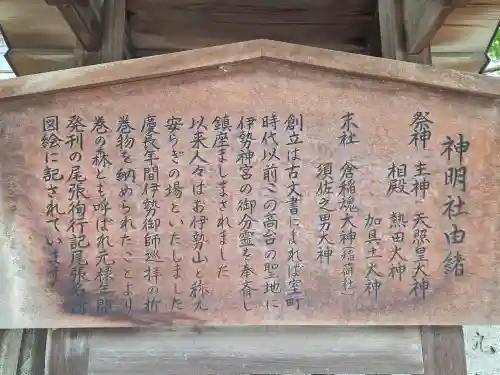 神明社由緒
祭神 主神 天照皇大神
相殿 熱田大神
加具土大神
末社 倉稲魂大神(稲荷社)
須佐之男大神
創立は古文書によれば室町
時代以前この高台の聖地に
伊勢神宮の御分霊を奉斎し
鎮座ましまされました
以来人々はお伊勢山と称え
安らぎの場といたしました
慶長年間伊勢御師巡拝の折
巻物を納められたことより
巻の森とも呼ばれ元禄年間
発刊の尾張徇行記尾張名所
図絵に記されています